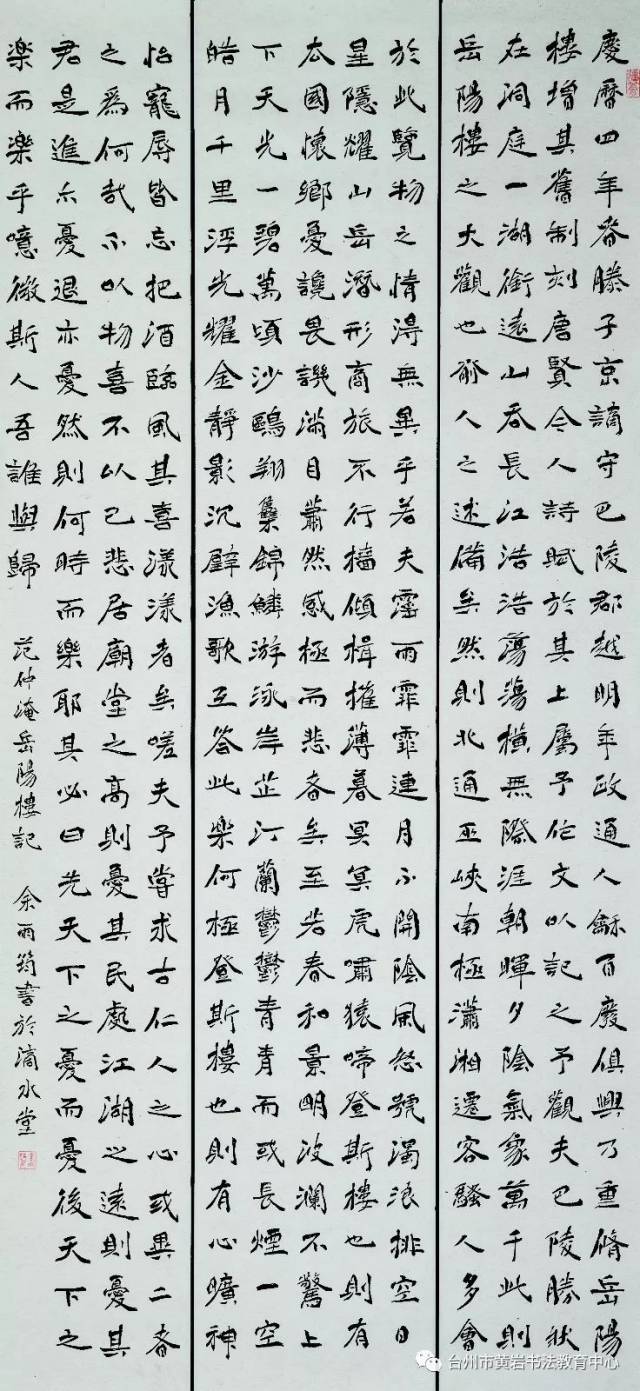 慶曆四年春滕子京謫守巴陵郡越明年政通人龢百廢俱興乃重脩岳陽
樓增其舊制刻唐賢今人詩賦於其上屬予作文以記之予觀夫巴陵勝狀
在洞庭一湖銜遠山吞長江浩浩蕩蕩橫無際涯朝暉夕陰氣象萬千此則
岳陽樓之大觀也前人之述備矣然則北通巫峽南極瀟湘遷客騷人多會
於此覽物之情得無異乎若夫霪雨霏霏連月不開陰風怒號濁浪排空日
星隱耀山岳潛形商旅不行檣傾楫摧薄暮冥冥虎嘯猿啼登斯樓也則有
去國懷鄉憂讒畏譏滿目蕭然感極而悲者矣至若春和景明波瀾不驚上
下天光一碧萬頃沙鷗翔集錦鱗游泳岸芷汀蘭鬱鬱青青而或長煙一空
皓月千里浮光耀金靜影沉璧漁歌互答此樂何極登斯樓也則有心曠神
怡寵辱皆忘把酒臨風其喜漾漾者矣嗟夫予嘗求古仁人之心或異二者
之為何哉不以物喜不以己悲居廟堂之高則憂其民處江湖之遠則憂其
君是進亦憂退亦憂然則何時而樂耶其必曰先天下之憂而憂後天下之
樂而樂乎噫微斯人吾誰與歸 范仲淹岳陽樓記 余雨筠書於滴水堂
台州市黄岩书法教育中心